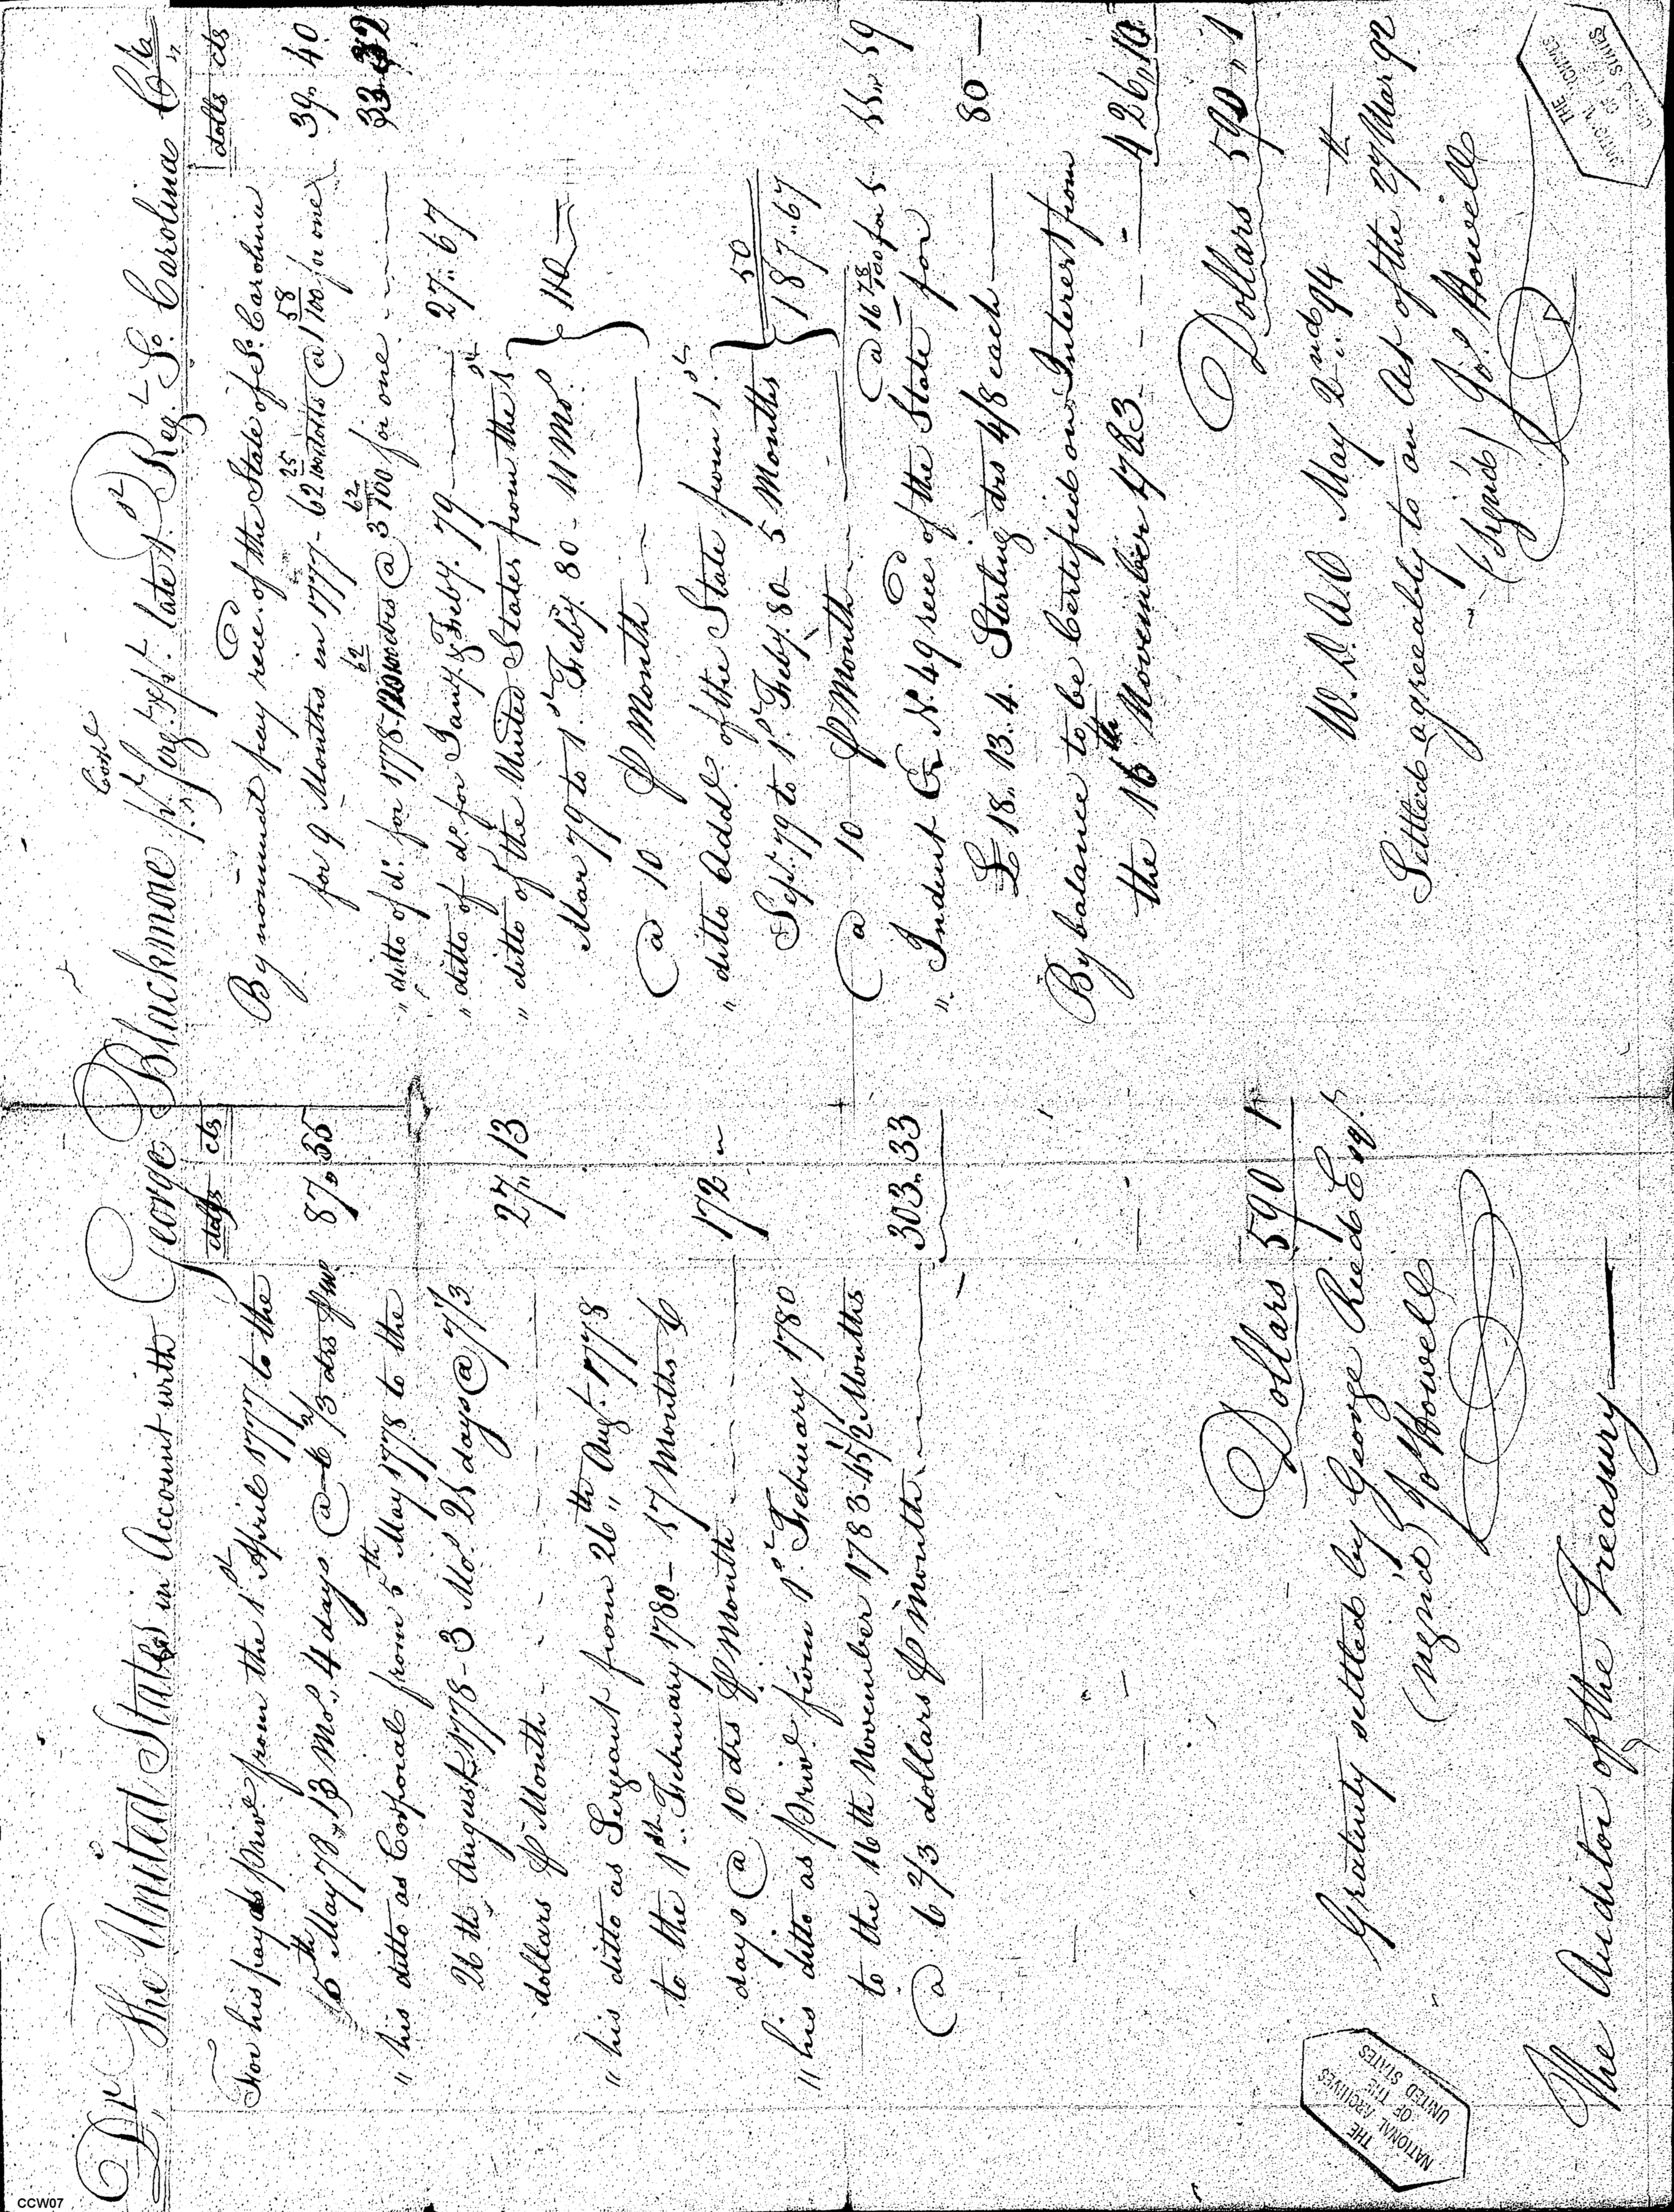 Dr The United States in Account with George Blackmore pt. Corpl. pt. Sergt. late 1st Reg.t So. Carolina Cr
dolls cts
For his pay as Priv.e from the 1st April 1777 to the
5th May 78, 13 Mos., 4 days @ 6 2/3 drs p mo. 87,, 55
" his ditto as Corporal from 5th May 1778 to the
26th August 1778 - 3 Mos. 25 days @ 7 1/3
dollars p Month 27,, 13
" his ditto as Sergeant from 26th Augt. 1778
to the 1st February 1780 - 17 Months 6
days @ 10 drs p Month 172 "
" his ditto as Priv.e from 1st February 1780
to the 16th November 1783 - 45 1/2 Months
@ 6 2/3 dollars p month 303,, 33
Dollars 590 1
Gratuity settled by George Reed Esqr.
(signed) Jo Howell
The Auditor of the Treasury
dolls cts
By nominal pay rec.d of the State of So. Carolina
for 9 Months in 1777 - 62 25/100 dolls @ 1 58/100 for one 39,, 40
" ditto of do. for 1778 62/100 drs @ 3 62/100 for one 33
" ditto of do. for Jany. & Feby. 79 27,, 67
" ditto of the United States from the 1st
Mar 79 to 1st Feby. 80 - 11 Mos.
@ 10 p Month } 110 -
" ditto Add.l of the State from 1st
Sept. 79 to 1st Feby. 80 - 5 Months
@ 10 p Month } 50
187,, 67
@ 16 78/100 for
" Indent G No. 49 rec.d of the State for
£ 18,, 13. 4. Sterling drs 4/8 each 80 -
By balance to be Certified on Interest from
the 16th November 1783 426,, 10
Dollars 590,, 1
W. D. A.O May 2nd 94
Settled agreeably to an Act of the 27 Mar 92
(Signed) Jo. Howell
THE
NATIONAL ARCHIVES
OF THE
UNITED STATES
THE
NATIONAL ARCHIVES
OF THE
UNITED STATES
CCW07